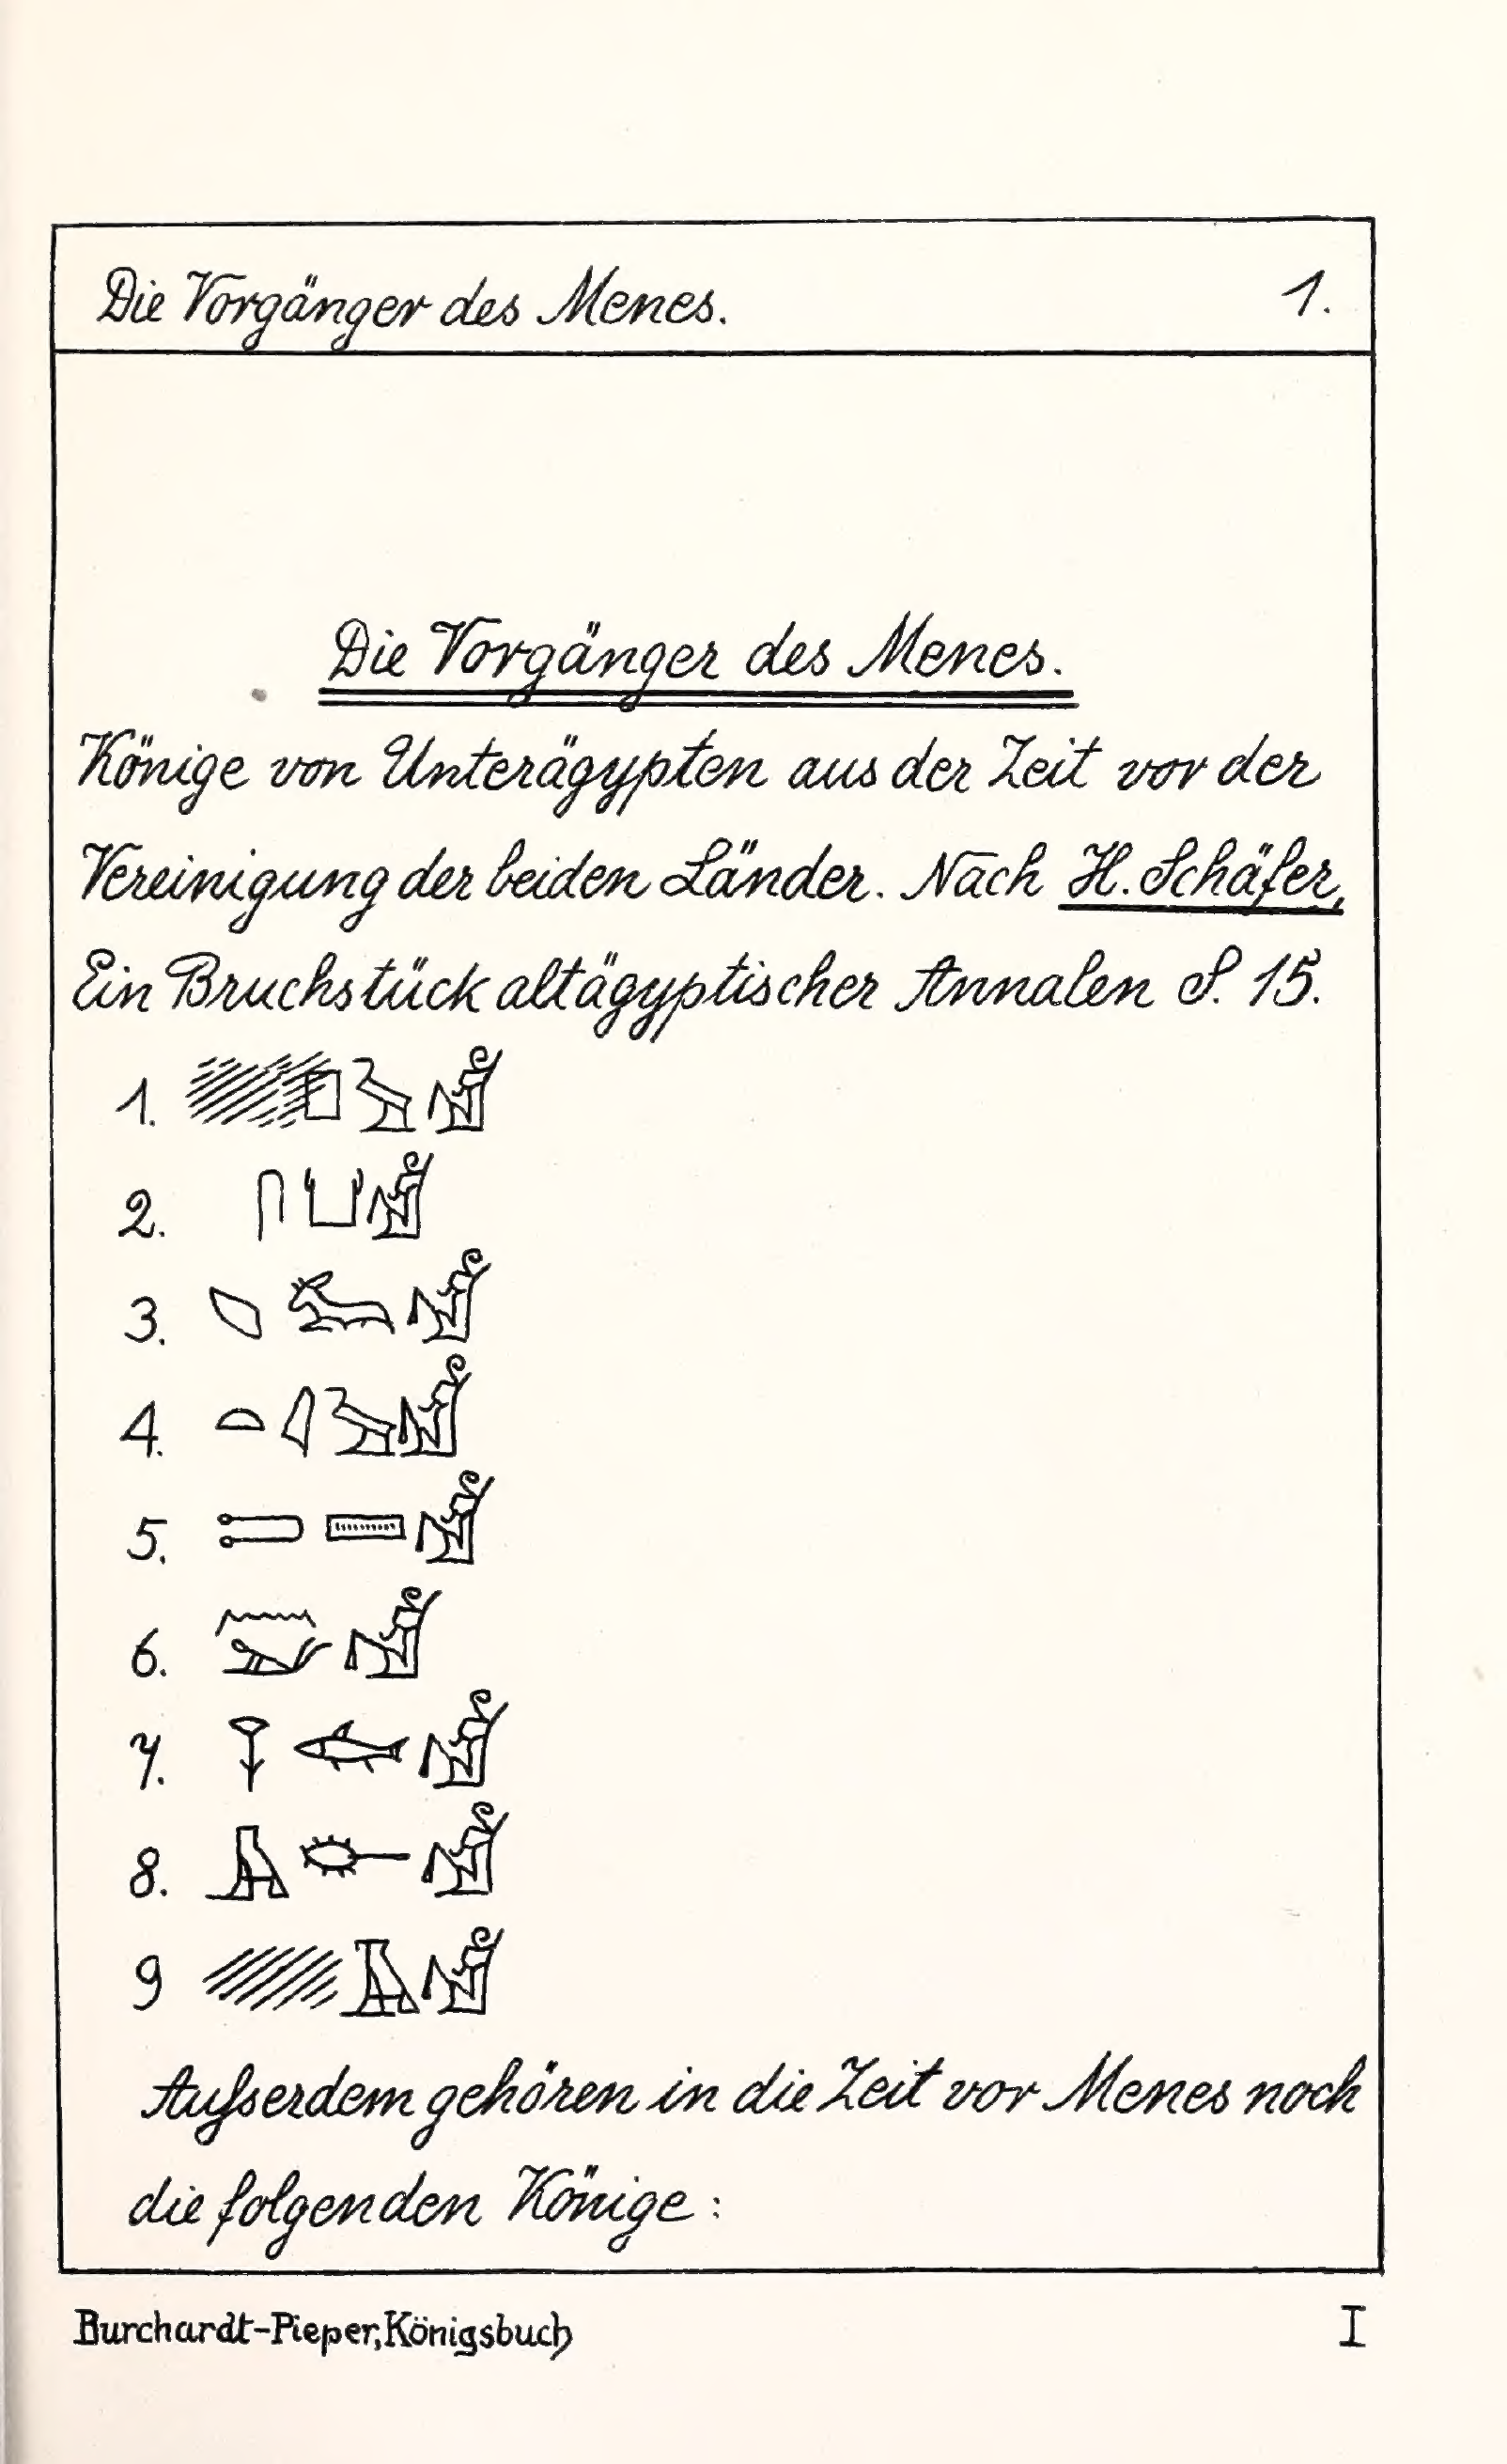 Die Vorgänger des Menes. 1.
Die Vorgänger des Menes.
Könige von Unterägypten aus der Zeit vor der
Vereinigung der beiden Länder. Nach H. Schäfer,
Ein Bruchstück altägyptischer Annalen S. 15.
1.
2.
3.
4.
5.
6.
7.
8.
9
Aufserdem gehören in die Zeit vor Menes noch
die folgenden Könige:
Burchardt-Pieper, Königsbuch I